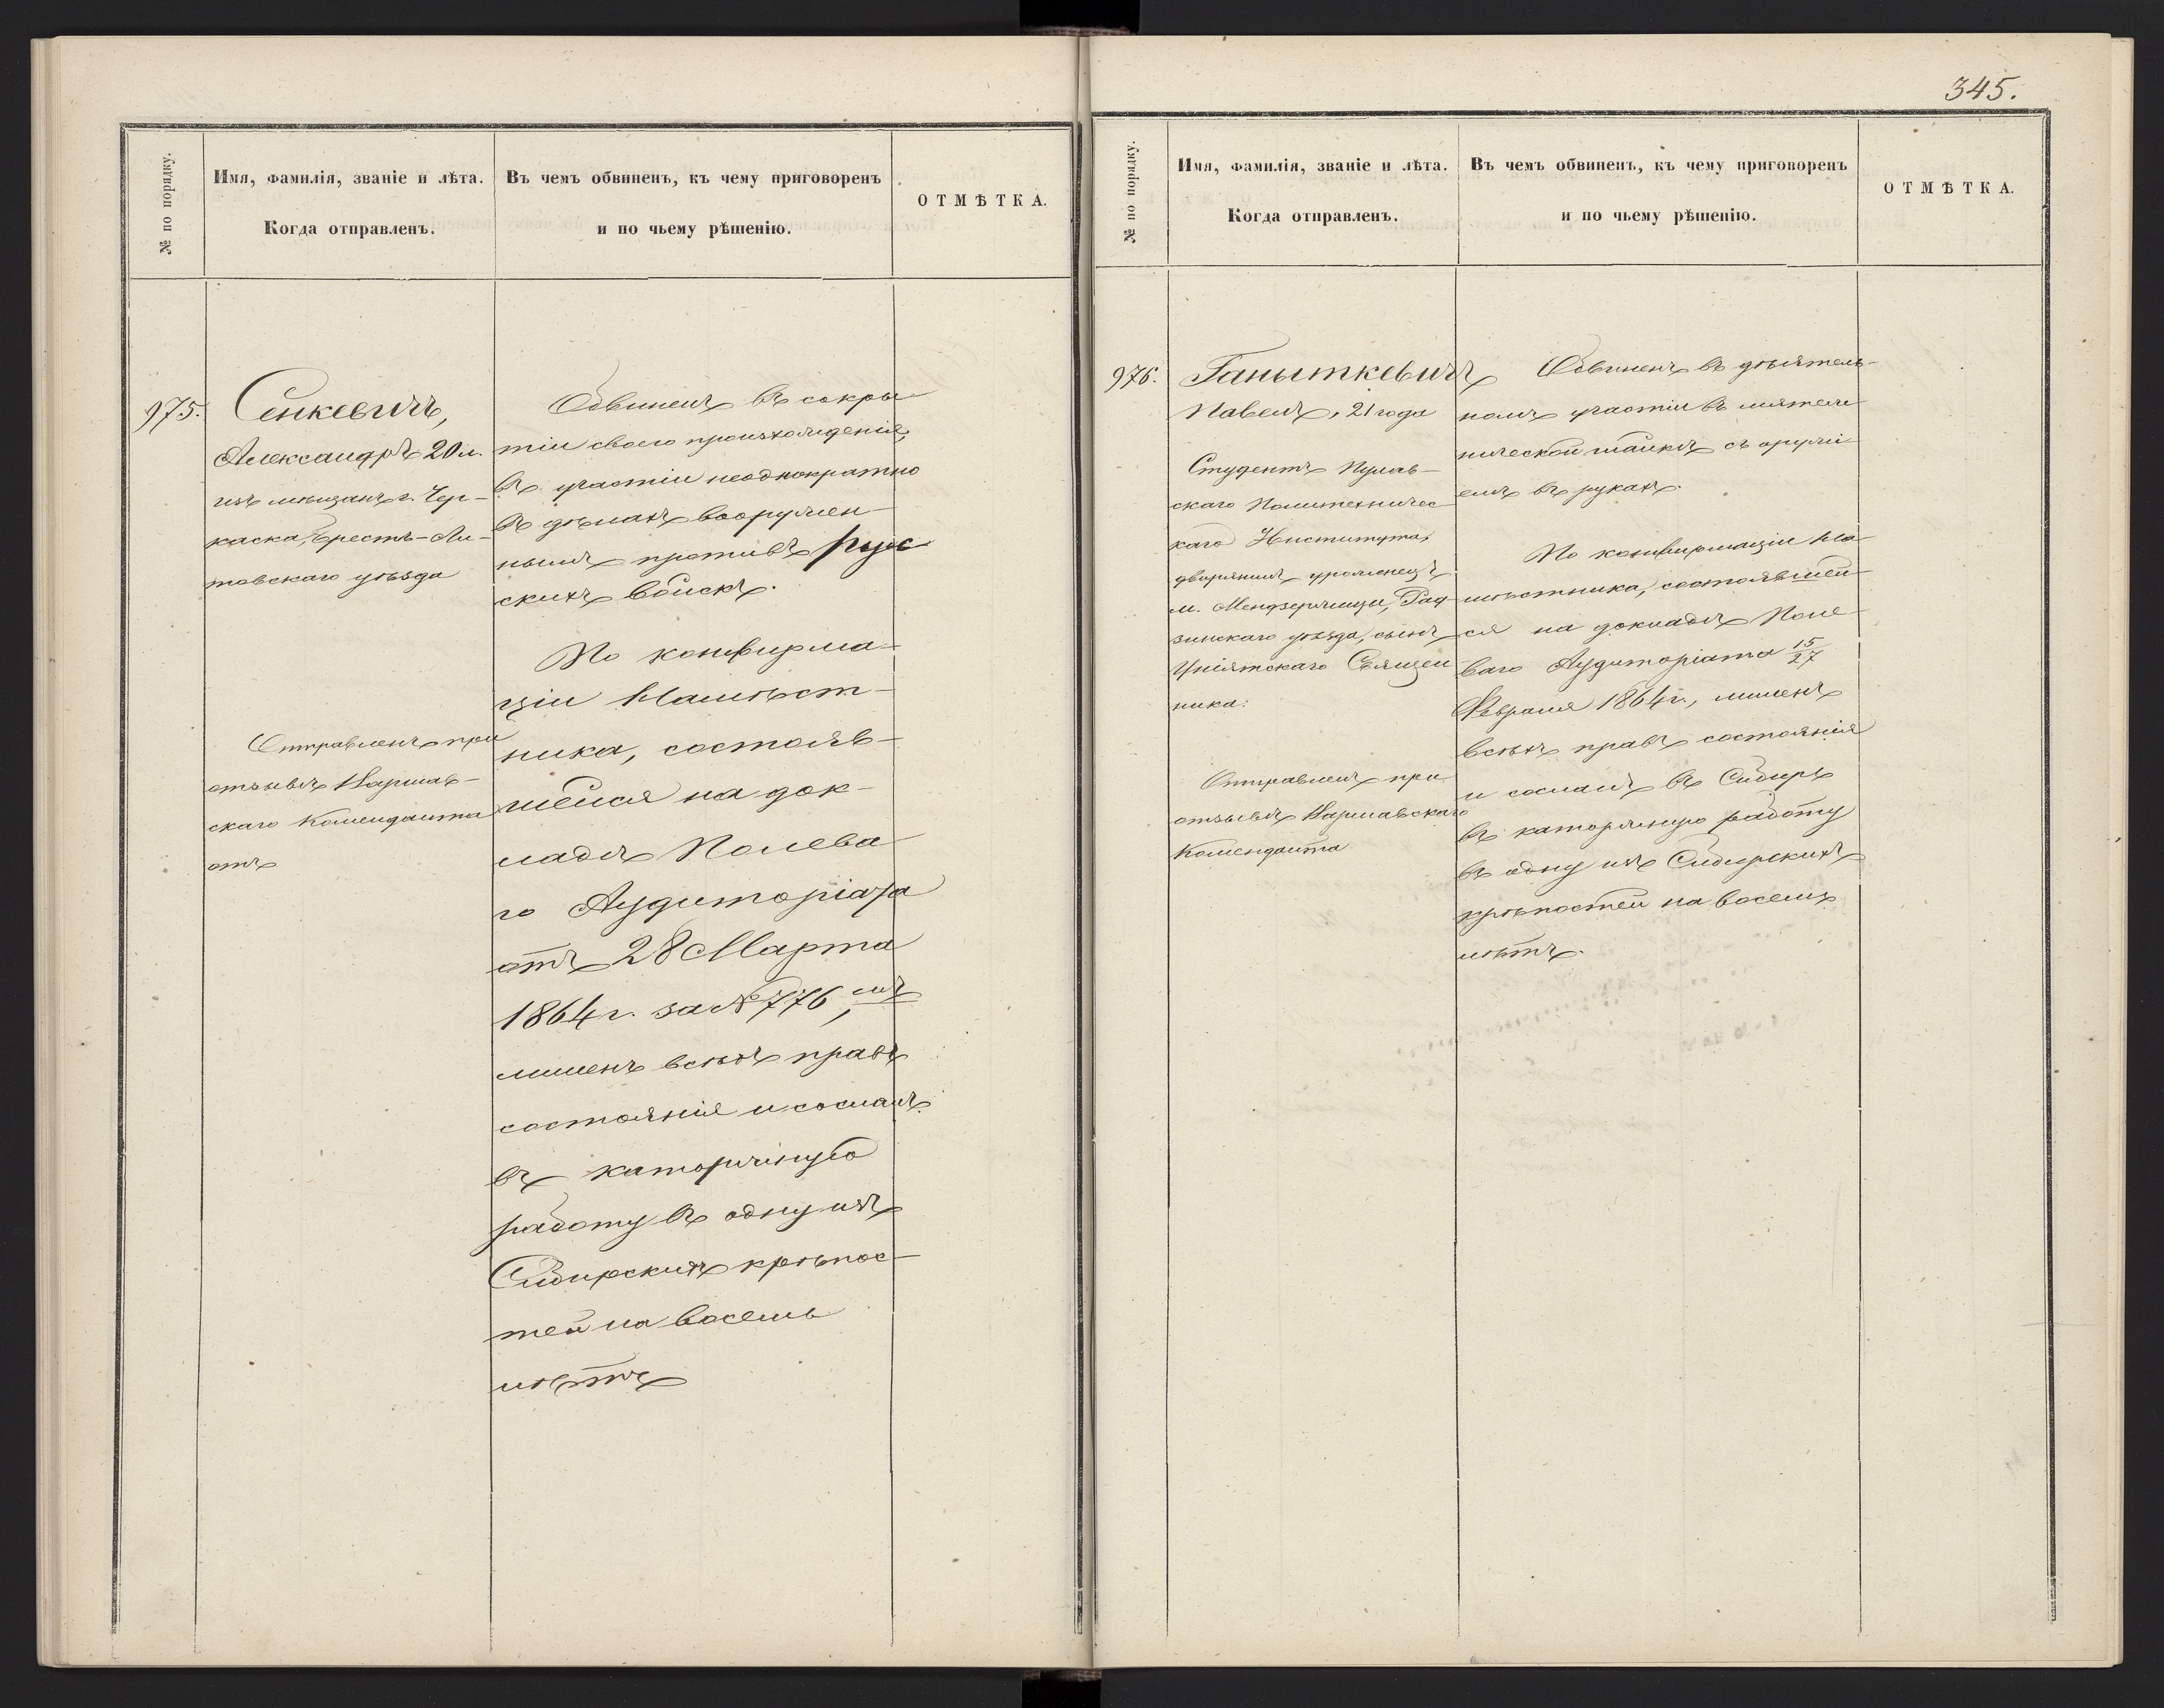 № по порядку.
Имя, фамилія, званіе и лѣта.
Когда отправленъ.
Въ чемъ обвиненъ, къ чему приговоренъ
и по чьему рѣшенію.
ОТМѢТКА.
975.
Сенкевичъ,
Александръ 20 л.
изъ мѣщанъ г. Чер-
каска, Брестъ-Ли-
товскаго уѣзда
Отправленъ при
отзывѣ Варшав-
скаго Коменданта
отъ
Обвиненъ въ сокры
тіи своего происхожденія,
въ участіи неоднократно
въ дѣлахъ вооружен
нымъ противъ Рус
скихъ войскъ.
По конфирма-
ціи Намѣст-
ника, состояв-
шейся на док-
ладѣ Полева
го Аудиторіата
отъ 28 Марта
1864 г. за № 776,
лишенъ всѣхъ правъ
состоянія и сосланъ
въ каторжную
работу въ одну изъ
Сибирскихъ крѣпос-
тей на восемь
лѣтъ
345.
№ по порядку.
Имя, фамилія, званіе и лѣта.
Когда отправленъ.
Въ чемъ обвиненъ, къ чему приговоренъ
и по чьему рѣшенію.
ОТМѢТКА.
976.
Ганыткевичъ
Павелъ, 21 года
Студентъ Пулав-
скаго Политехничес
каго Института,
дворянинъ, уроженецъ
м. Мендзержицы, Рад
зинскаго уѣзда, сынъ
Уніятскаго Священ
ника.
Отправленъ при
отзывѣ Варшавскаго
Коменданта
Обвиненъ въ дѣятель-
номъ участіи въ мятеж
нической шайкѣ съ оружі
емъ въ рукахъ.
По конфирмаціи На
мѣстника, состоявшей
ся на докладѣ Поле
ваго Аудиторіата 15/27
Февраля 1864 г., лишенъ
всѣхъ правъ состоянія
и сосланъ въ Сибирь
въ каторжную работу
въ одну изъ Сибирскихъ
крѣпостей на восемь
лѣтъ.